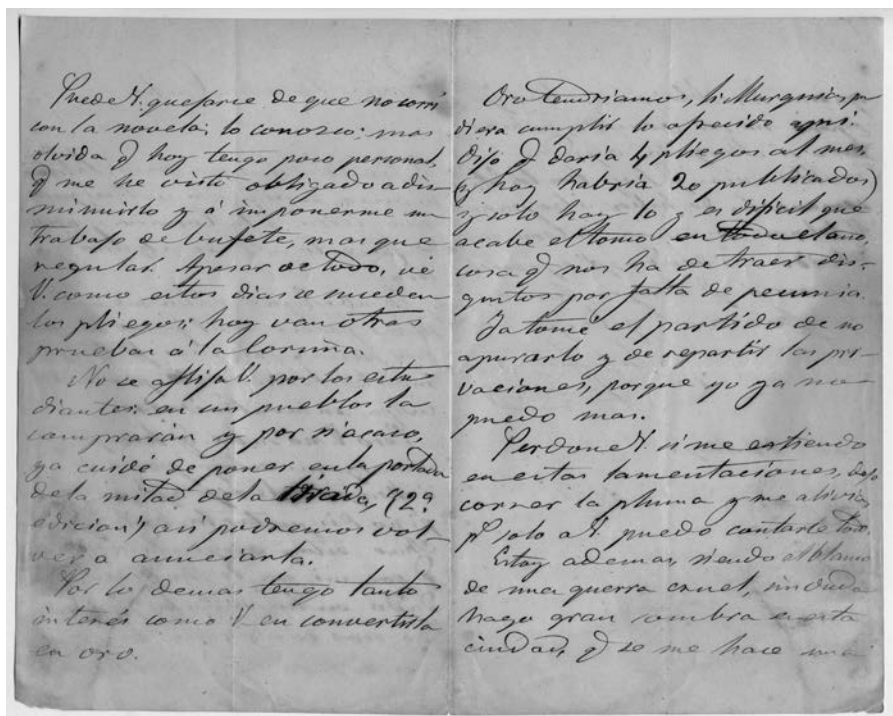 Puede V. quejarse de que no corrí
con la novela; lo conozco; mas
olvida q hoy tengo poco personal,
q me he visto obligado a dis-
minuirlo y á imponerme un
trabajo de bufete, mas que
regular. Apesar de todo, vé
V. como estos dias se suceden
los pliegos; hoy van otras
pruebas á la Coruña.
No se aflija V. por los estu
diantes: en sus pueblos la
comprarán y por si acaso,
ya cuidé de poner en la portada
de la mitad de la tirada, (2ª
edicion) asi podremos vol-
ver a anunciarla.
Por lo demas tengo tanto
interés como V. en convertirla
en oro.
Oro tendriamos, si Murguia pu
diera cumplir lo ofrecido
Dijo q daría 4 pliegos al mes,
(y hoy habría 20 publicados)
y solo hay 10 y es dificil que
acabe el tomo en todo el año,
cosa q nos ha de traer dis-
gustos por falta de pecunia.
Ya tomé el partido de no
apurarlo y de repartir las pri-
vaciones, porque yo ya no
puedo mas.
Perdone V. si me extiendo
en estas lamentaciones, dejo
correr la pluma y me alivia,
p solo a V. puedo contarle todo.
Estoy ademas, siendo el blanco
de una guerra cruel, sin duda
hago gran sombra en esta
ciudad, q se me hace una